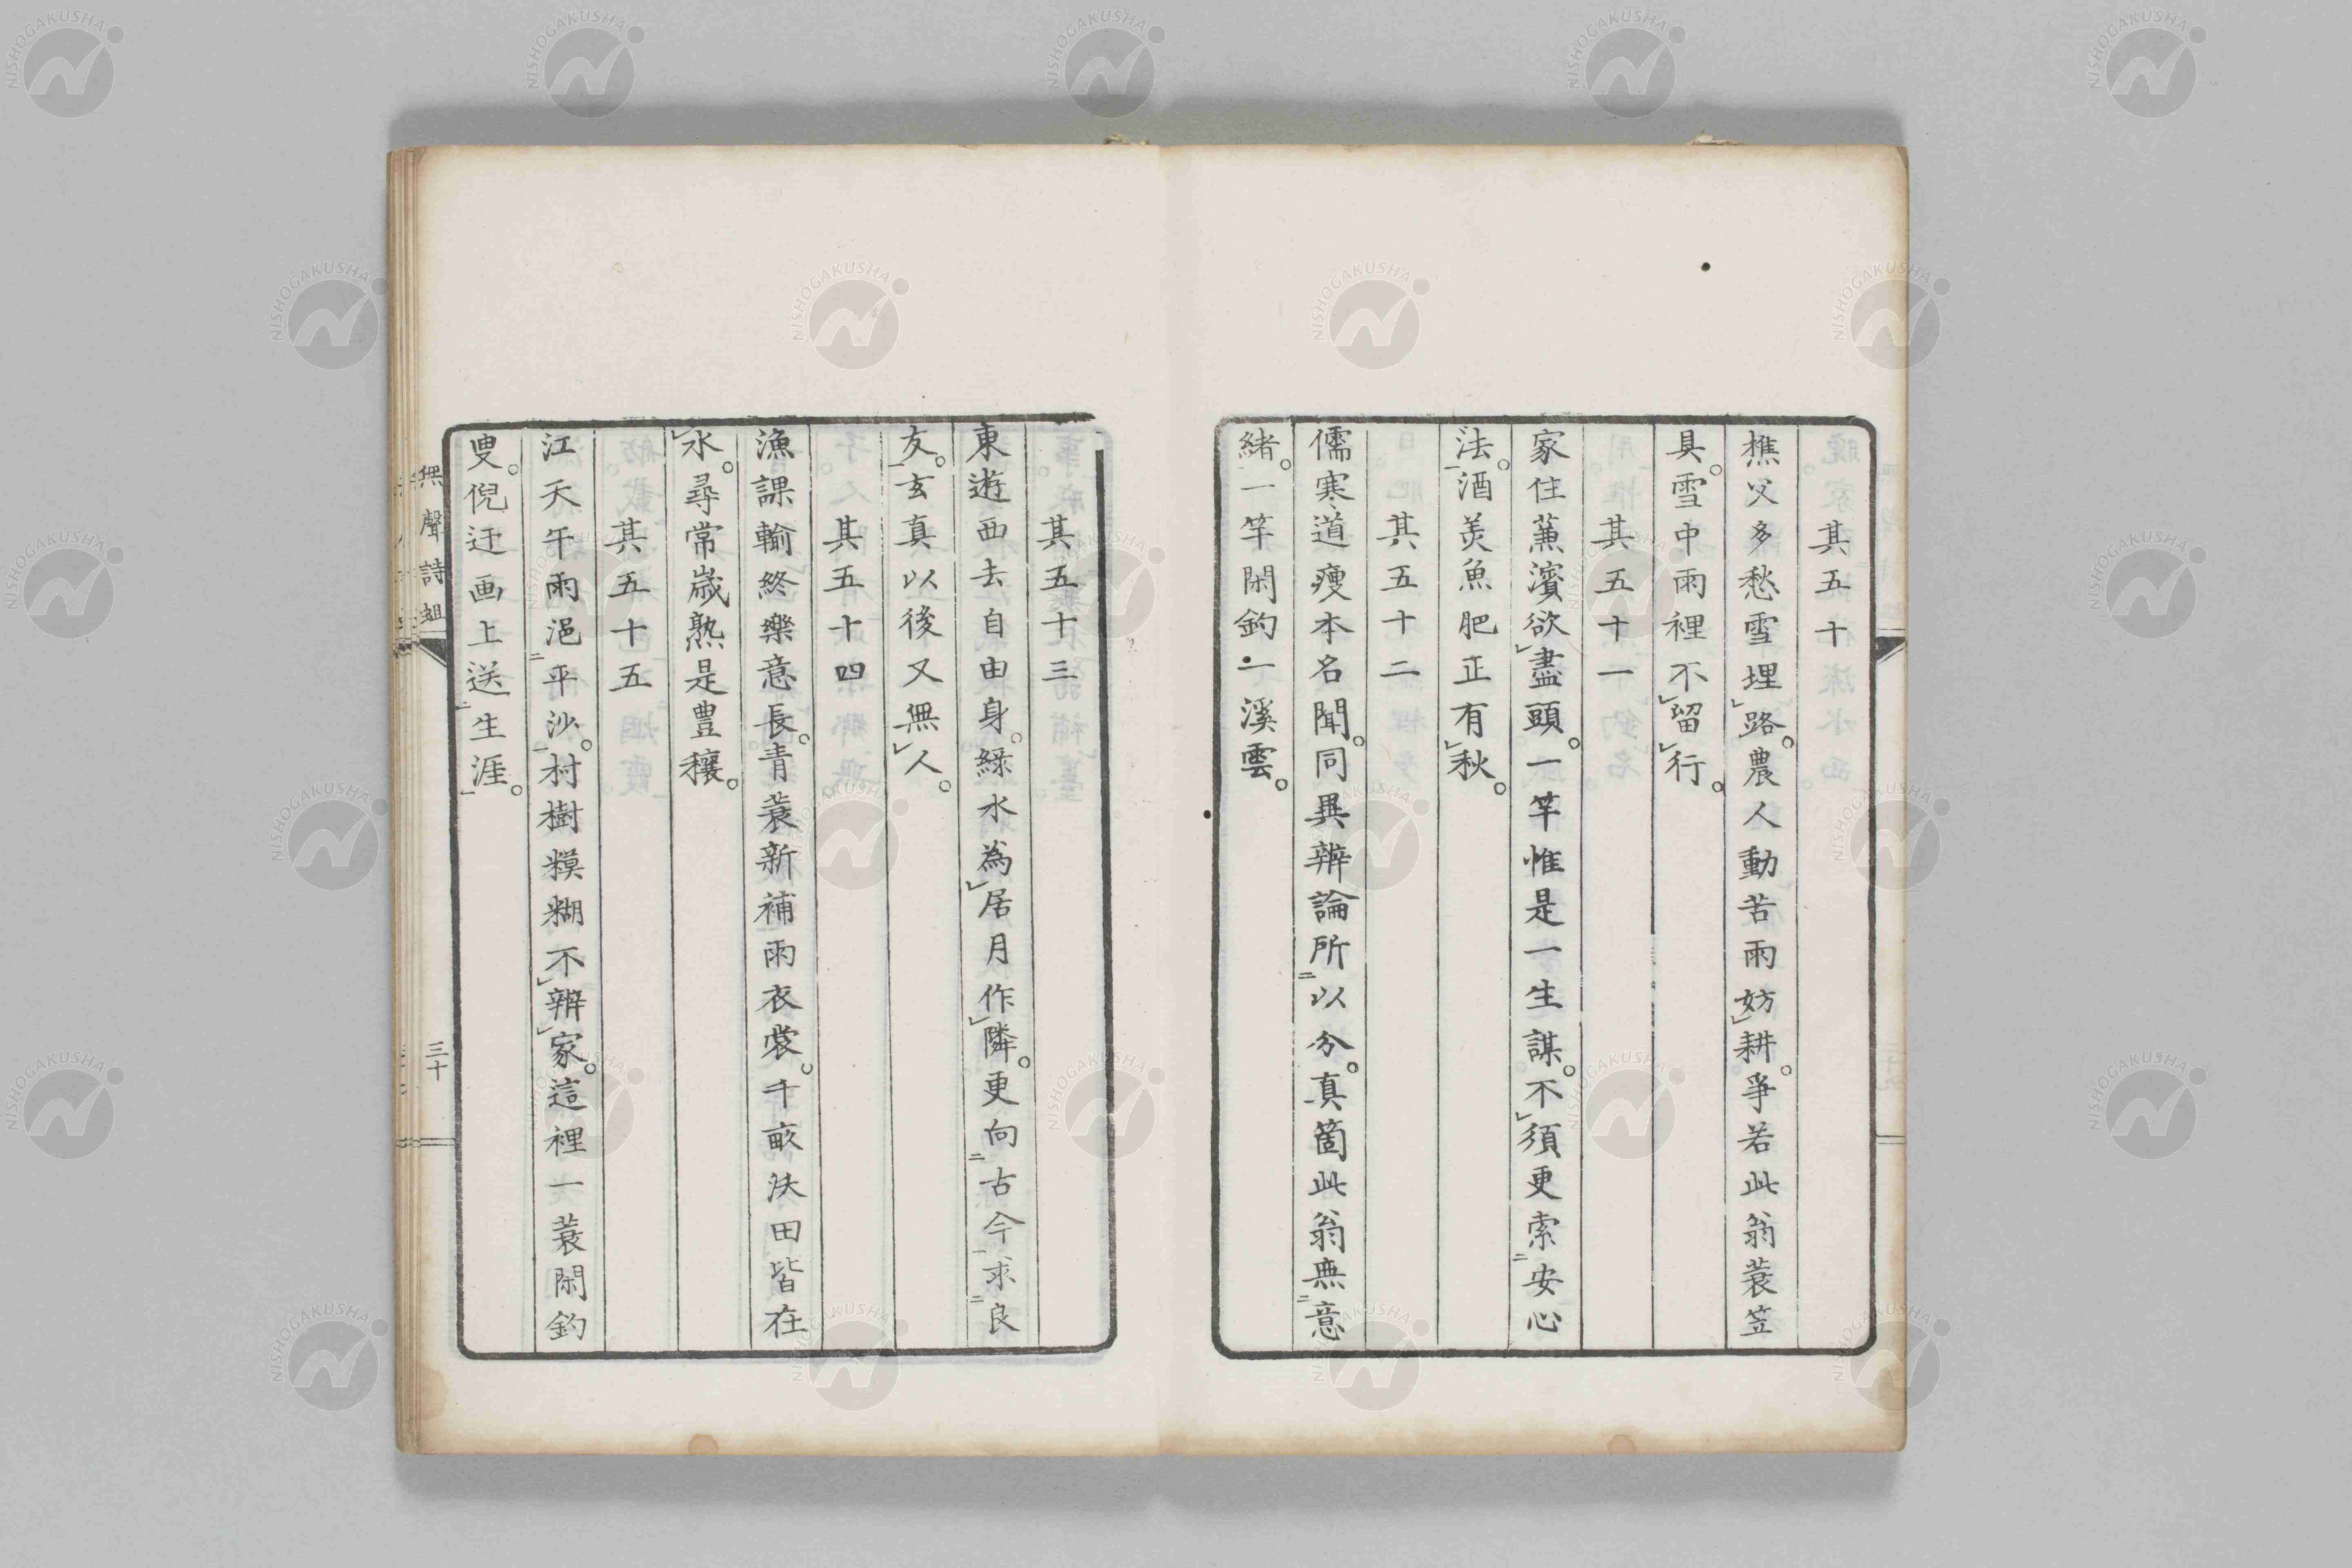 其五十
樵父多愁雪埋路。農人動苦雨妨耕。爭若此翁蓑笠
具。雪中雨裡不留行。
其五十一
家住蘋濱欲盡頭。一竿惟是一生謀。不須更索安心
法。酒美魚肥正有秋。
其五十二
儒寒道瘦本名聞。同異辨論所以分。真箇此翁無意
緒。一竿閑釣一溪雲。
其五十三
東遊西去自由身。綠水為居月作隣。更向古今求良
友。玄真以後又無人。
其五十四
漁課輸終樂意長。青蓑新補雨衣裳。千畝決田皆在
水。尋常歲熟是豊穰。
其五十五
江天午雨浥平沙。村樹糢糊不辨家。這裡一蓑閑釣
叟。倪迂画上送生涯。
無聲詩 三十
NISHOGAKUSHA